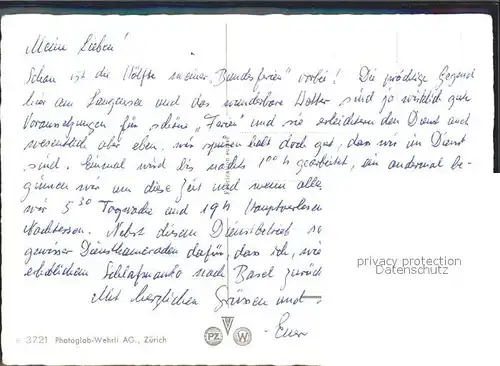 Meine Lieben!
Schon ist die Hälfte meiner "Bundesferien" vorbei! Die prächtige Gegend
hier am Langensee und das wunderbare Wetter sind ja wirklich gute
Voraussetzungen für schöne "Ferien" und sie erleichtern den Dienst auch
wesentlich aber eben. wir spüren halt doch gut, dass wir im Dienst
sind. Einmal wird bis nachts 1⁰⁰ h gearbeitet, ein andermal be-
ginnen wir um diese Zeit und wenn alles
wir 5³⁰ Tagwache und 19 h Hauptverlesen
Nachtessen. Nebst diesem Dienstbetrieb so
gewisser Dienstkameraden dafür, dass ich, wie
erheblichem Schlafmanko nach Basel zurück
Mit herzlichen Grüssen und
- Euer
privacy protection
- Datenschutz -
3721 Photoglob-Wehrli AG., Zürich
PZ W